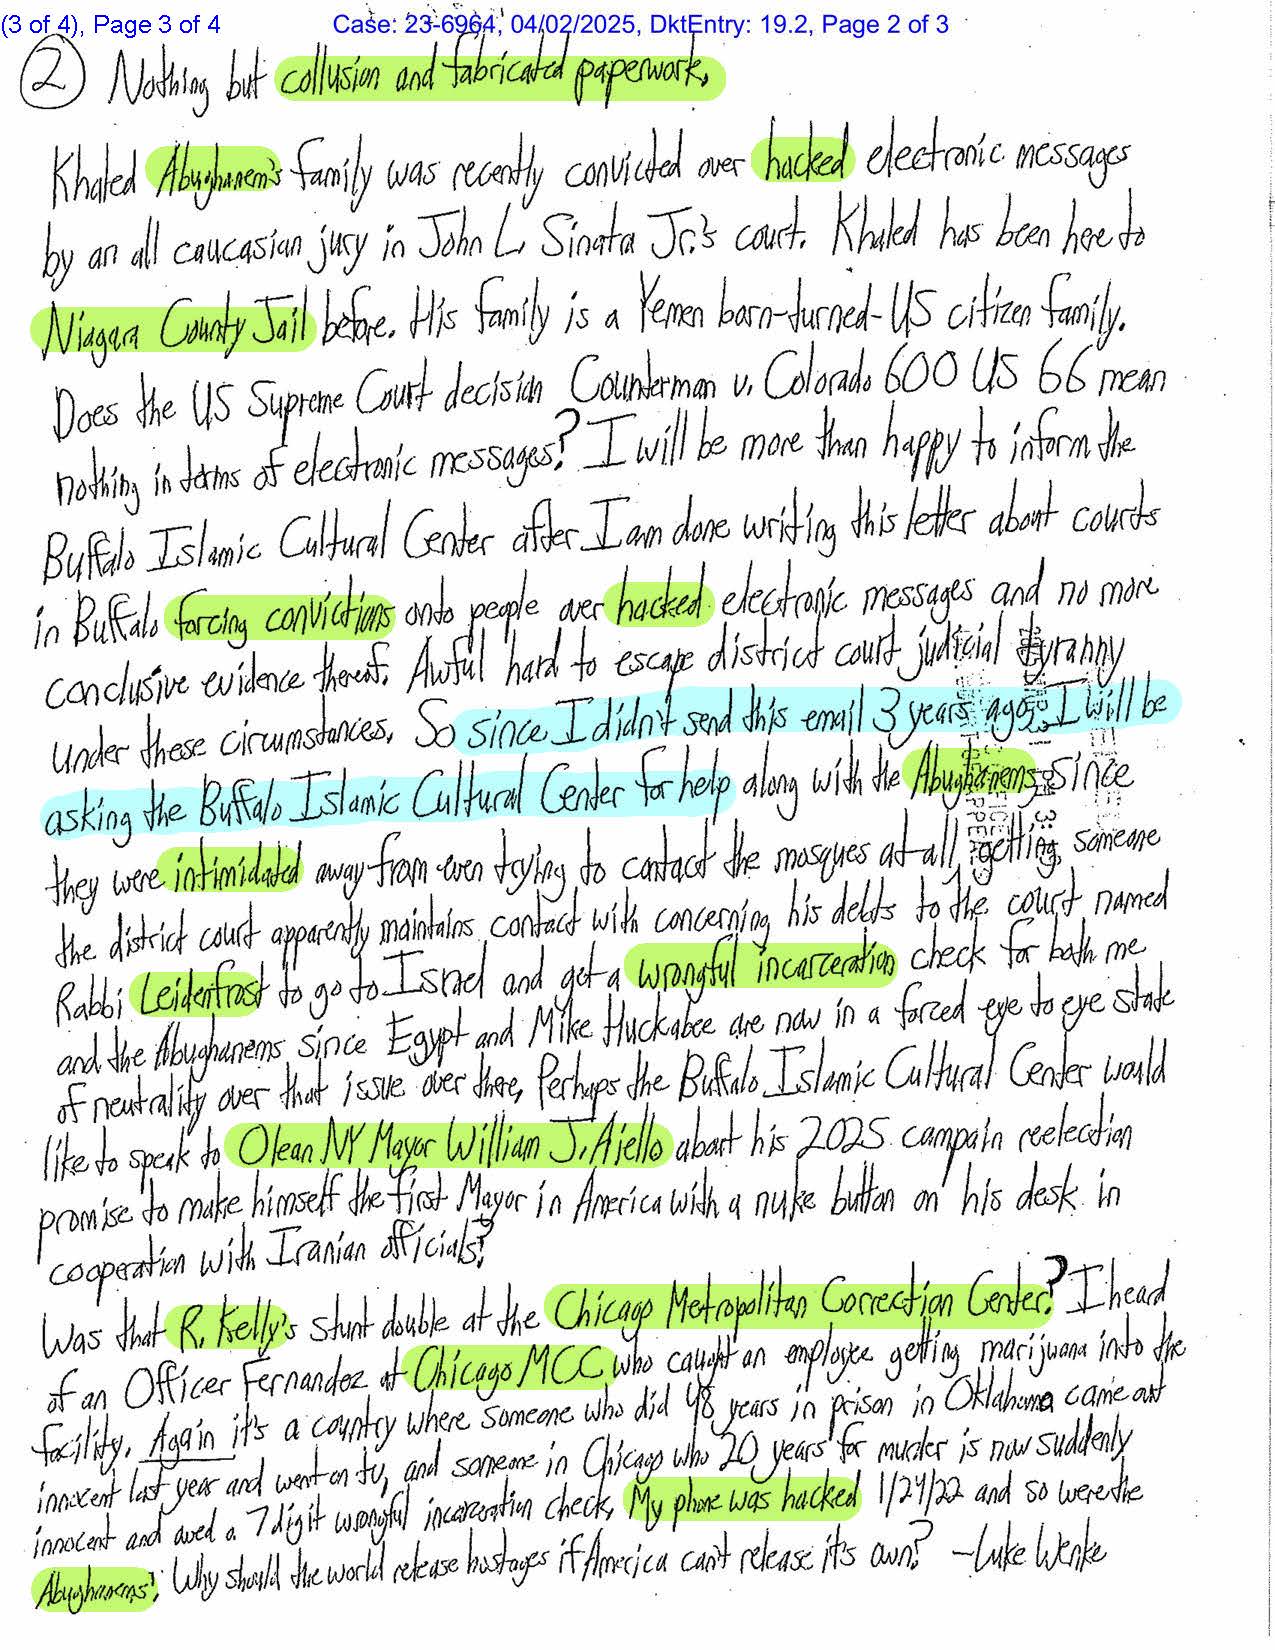 (3 of 4), Page 3 of 4
Case: 23-6964, 04/02/2025, DktEntry: 19.2, Page 2 of 3
2 Nothing but collusion and fabricated paperwork.
Khaled Abughanem's family was recently convicted over hacked electronic messages
by an all caucasian jury in John L. Sinatra Jr.'s court. Khaled has been here to
Niagara County Jail before. His family is a Yemen born-turned-US citizen family.
Does the US Supreme Court decision Counterman v. Colorado 600 US 66 mean
nothing in terms of electronic messages? I will be more than happy to inform the
Buffalo Islamic Cultural Center after I am done writing this letter about courts
in Buffalo forcing convictions onto people over hacked electronic messages and no more
conclusive evidence thereof. Awful hard to escape district court judicial tyranny
under these circumstances. So since I didn't send this email 3 years ago, I will be
asking the Buffalo Islamic Cultural Center for help along with the Abughanems since
they were intimidated away from even trying to contact the mosques at all, getting someone
the district court apparently maintains contact with concerning his debts to the court named
Rabbi Leidenfrost to go to Israel and get a wrongful incarceration check for both me
and the Abughanems since Egypt and Mike Huckabee are now in a forced eye to eye state
of neutrality over that issue over there, Perhaps the Buffalo Islamic Cultural Center would
like to speak to Olean NY Mayor William J. Aiello about his 2025 campain reelection
promise to make himself the first Mayor in America with a nuke button on his desk in
cooperation with Iranian officials?
Was that R. Kelly's stunt double at the Chicago Metropolitan Correction Center? I heard
of an Officer Fernandez at Chicago MCC who caught an employee getting marijuana into the
facility. Again it's a country where someone who did 48 years in prison in Oklahoma came out
innocent last year and went on tv, and someone in Chicago who 20 years for murder is now suddenly
innocent and awed a 7 digit wrongful incarceration check, My phone was hacked 1/24/22 and so were the
Abughanems'. Why should the world release hostages if America can't release it's own? -Luke Wenke